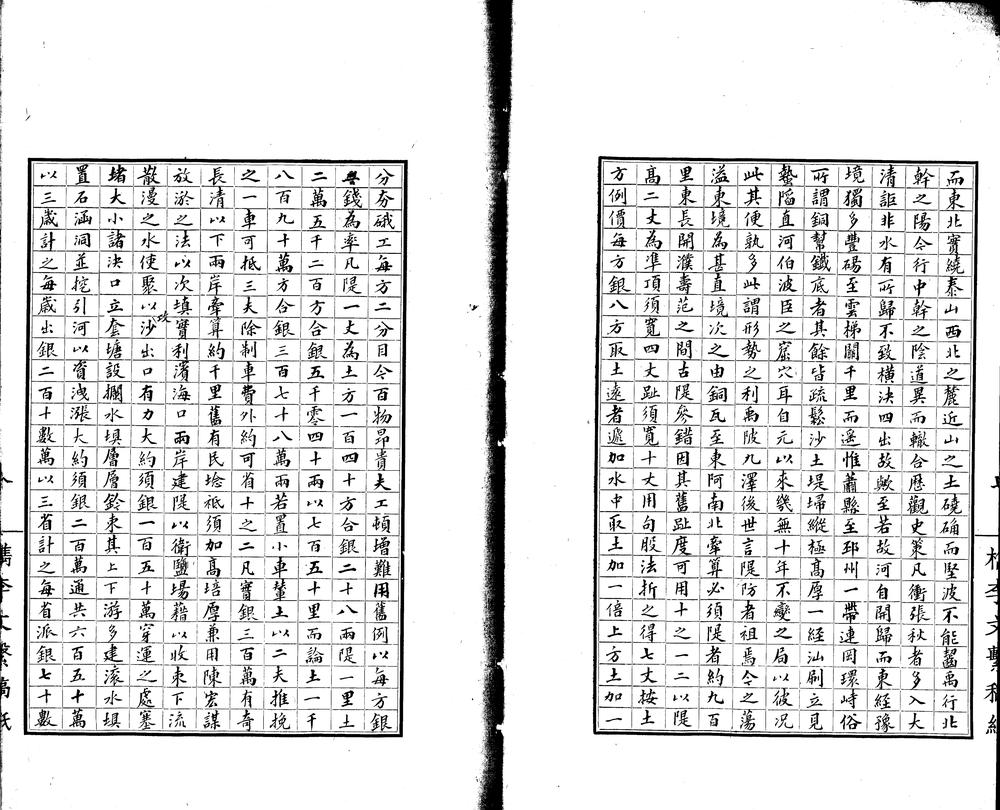 而東北實繞泰山西北之麓近山之土磽确而堅波不能齧禹行北
幹之陽今行中幹之陰道異而轍合歷觀史策凡衝張秋者多入大
清詎非水有所歸不致橫決四出故歟至若故河自開歸而東經豫
境獨多豐碭至雲梯關千里而遙惟蕭縣至邳州一帶連岡環峙俗
所謂銅幫鐵底者其餘皆疏鬆沙土堤埽縱極高厚一經汕刷立見
蟄陷直河伯波臣之窟穴耳自元以來幾無十年不變之局以彼況
此其便孰多此謂形勢之利禹陂九澤後世言隄防者祖焉今之蕩
溢東境為甚直境次之由銅瓦至東阿南北牽算必須隄者約九百
里東長開濮壽范之間古隄參錯因其舊趾度可用十之一二以隄
高二丈為準頂須寬四丈趾須寬十丈用句股法折之得七丈按土
方例價每方銀八方取土遠者遞加水中取土加一倍上方土加一
分夯硪工每方二分目今百物昂貴夫工頓增難用舊例以每方銀
錢為率凡隄一丈為土方一百四十方合銀二十八兩隄一里土
二萬五千二百方合銀五千零四十兩以七百五十里而論土一千
八百九十萬方合銀三百七十八萬兩若置小車輦土以二夫推挽
之一車可抵三夫除制車費外約可省十之二凡實銀三百萬有奇
長清以下兩岸牽算約千里舊有民埝祗須加高培厚兼用陳宏謀
放淤之法以次填實利濱海口兩岸建隄以衛鹽場藉以收束下流
散漫之水使聚以攻沙出口有力大約須銀一百五十萬穿運之處塞
堵大小諸決口立奎塘設攔水埧層層鈴束其上下游多建滾水埧
置石涵洞並挖引河以資洩漲大約須銀二百萬通共六百五十萬
以三歲計之每歲出銀二百十數萬以三省計之每省派銀七十數